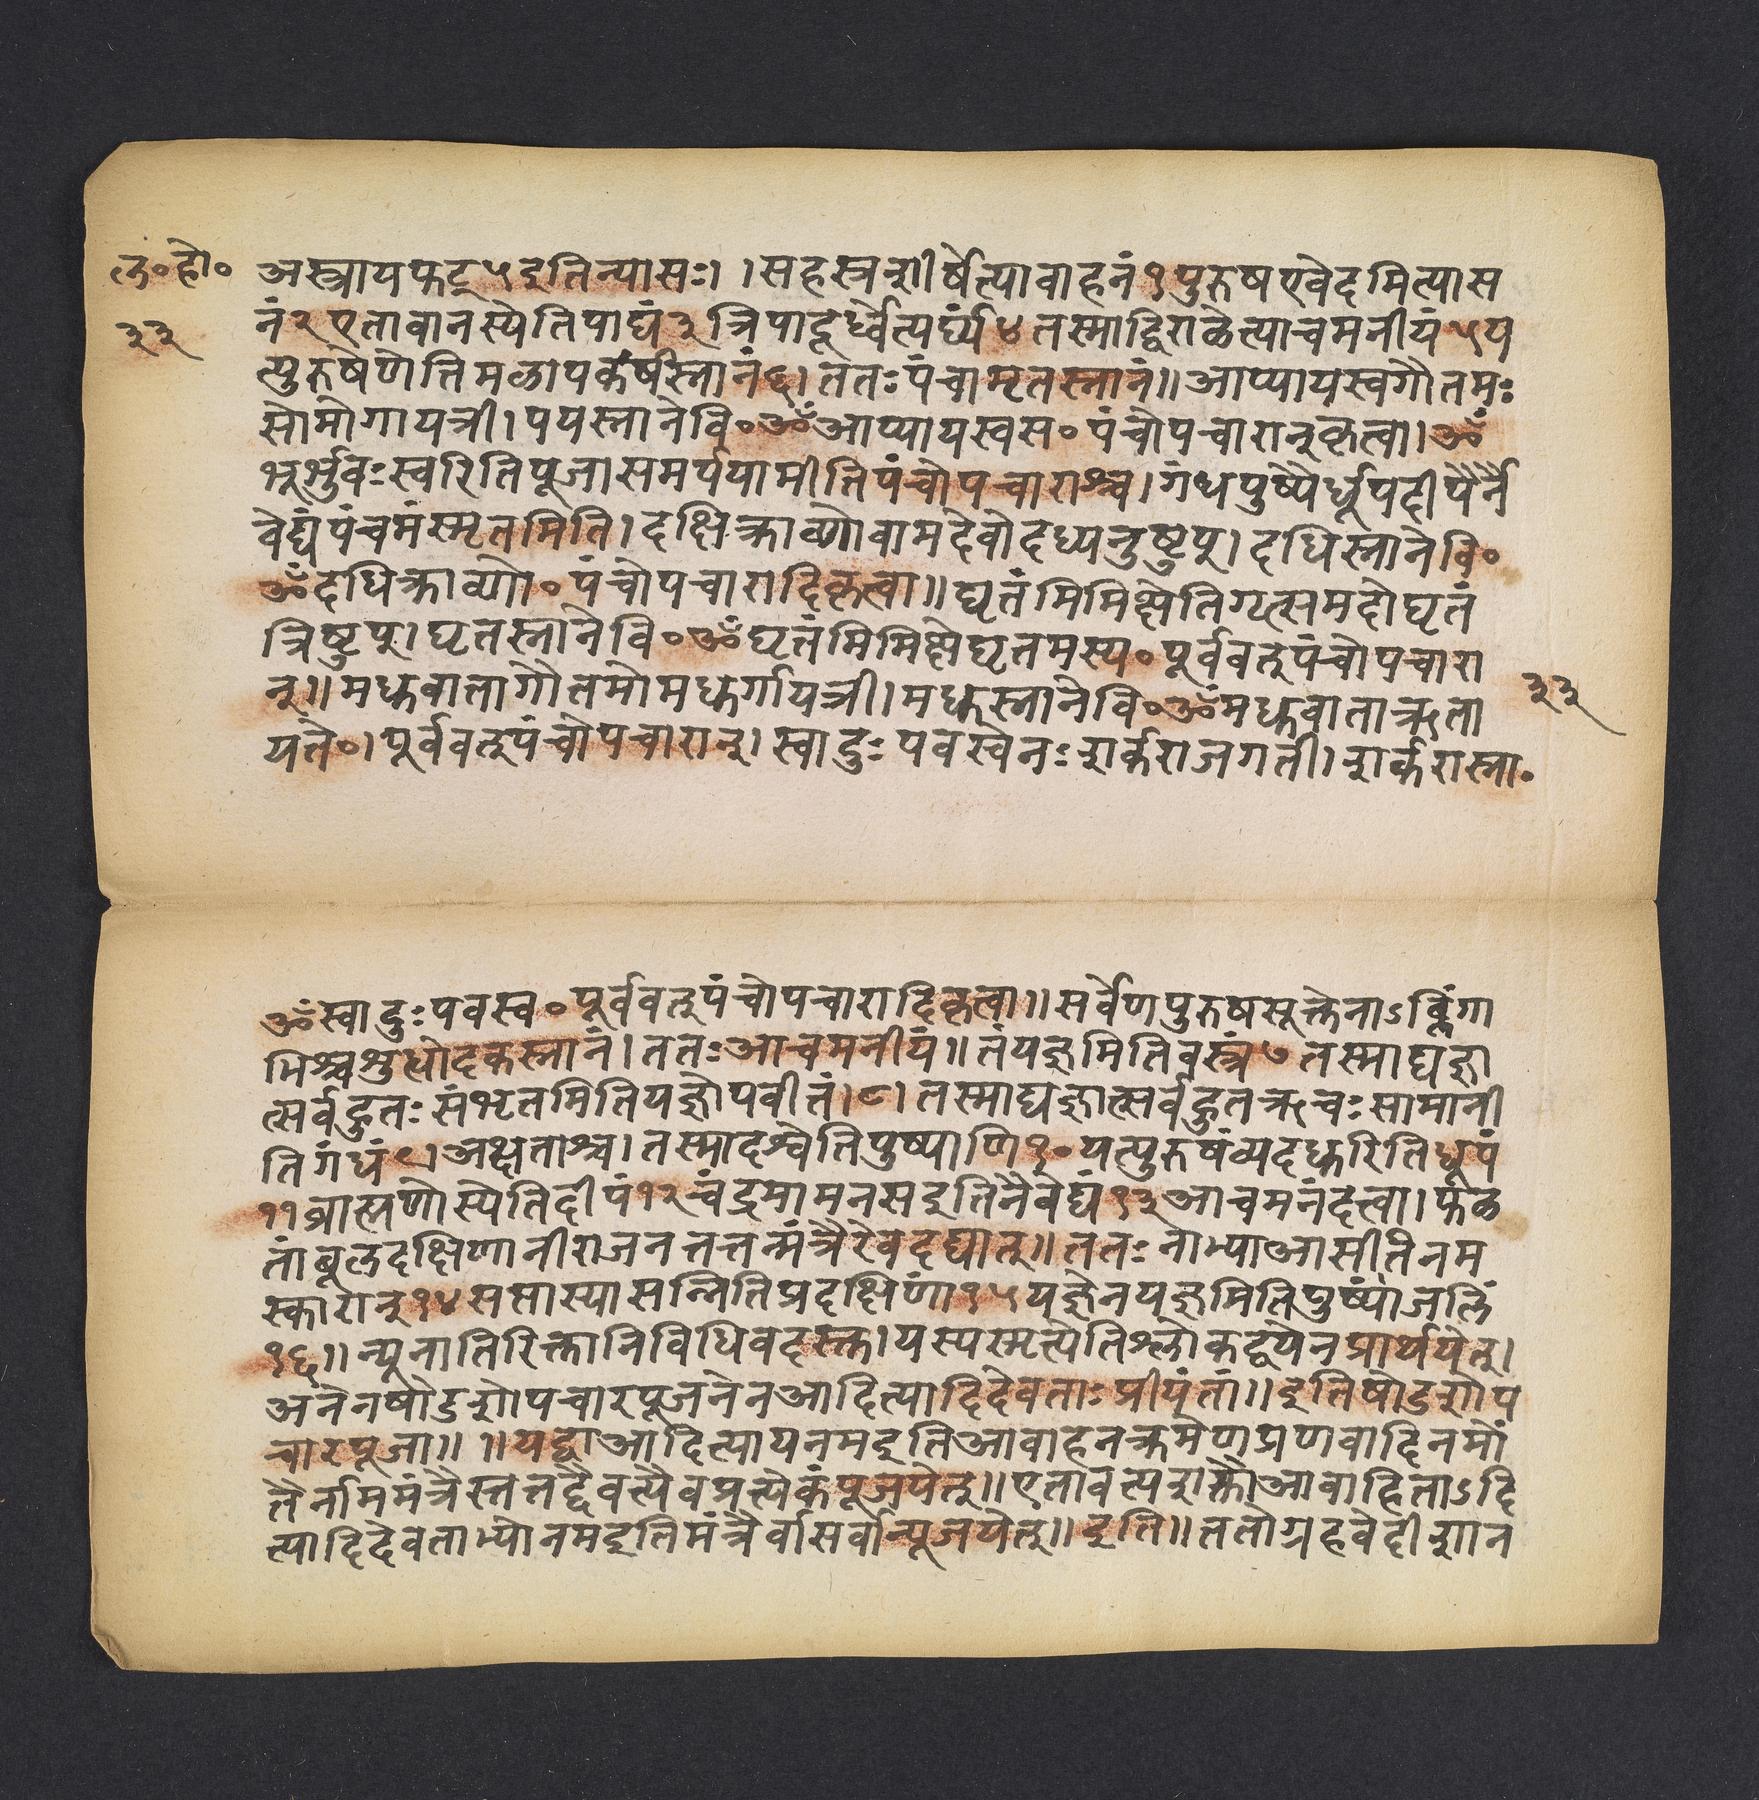 ल॰हो॰
३३
अस्त्रायफट्५इतिन्यासः।।सहस्त्रशीर्षेत्यावाहनं१पुरुषएवेदमित्यास
नं२एतावानस्येतिपाद्यं३त्रिपादूर्ध्वेत्यर्घ्यं४तस्माद्विराळेत्याचमनीयं५य
त्पुरुषेणेतिमळापकर्षस्नानं६।ततःपंचामृतस्नानं॥आप्यायस्वगौतमः
सोमोगायत्री।पयस्नानेवि॰ॐआप्यायस्वस॰पंचोपचारान्कृत्वा।ॐ
भूर्भुवःस्वरितिपूजासमर्पयामीतिपंचोपचाराश्च।गंधपुष्पैर्धूपदीपैर्नै
वेद्यंपंचमंस्मृतमिति।दक्षिक्राव्णोवामदेवोदध्यनुष्टुप्।दधिस्नानेवि॰
ॐदधिक्राव्णो॰पंचोपचारादिकृत्वा॥घृतंमिमिक्षेतिगृत्समदोघृतं
त्रिष्टुप्।घृतस्नानेवि॰ॐघृतंमिमिक्षेघृतमस्य॰पूर्ववत्पंचोपचारा
न्॥मधुवातागौतमोमधुर्गायत्री।मधुस्नानेवि॰ॐमधुवाताऋता
यते॰।पूर्ववत्पंचोपचारान्।स्वादुःपवस्वेनःशर्कराजगती।शर्करास्ना॰
३३
ॐस्वादुःपवस्व॰पूर्ववत्पंचोपचारादिकृत्वा॥सर्वेणपुरुषसूक्तेनाऽब्लिंगा
भिश्चशुधोदकस्नानं।ततःआचमनीयं॥तंयज्ञमितिवस्त्रं७तस्माद्यज्ञा
त्सर्वहुतःसंभृतमितियज्ञोपवीतं।८।तस्माद्यज्ञात्सर्वहुतऋचःसामानी
तिगंधं९।अक्षताश्च।तस्मादश्वेतिपुष्पाणि१॰यत्पुरुषंव्यदधुरितिधूपं
११ब्राह्मणोस्येतिदीपं१२चंद्रमामनसइतिनैवेद्यं१३आचमनंदत्वा।फळ
तांबूलदक्षिणानीराजनतत्तन्मंत्रैरेवदद्यात्॥ततःनाभ्याआसीतिनम
स्कारान्१४सप्तास्यासन्नितिप्रदक्षिणां१५यज्ञेनयज्ञमितिपुष्पांजलिं
१६॥न्यूनातिरिक्तानिविधिवदस्क्त।यस्यस्मृत्येतिश्लोकद्वयेनप्रार्थयेत्।
अनेनषोडशोपचारपूजनेनआदित्यादिदेवताःप्रीयंतां॥इतिषोडशोप
चारपूजा॥।॥यद्वाआदित्यायनमइतिआवाहनक्रमेणप्रणवादिनमों
तैर्नाममंत्रैस्तत्तद्दैवत्यैवप्रत्येकंपूजयेत्॥एतावत्यशक्तौआवाहिताऽदि
त्यादिदेवताभ्योनमइतिमंत्रैर्वासर्वान्पूजयेत्॥इति॥ततोग्रहवेदीशान